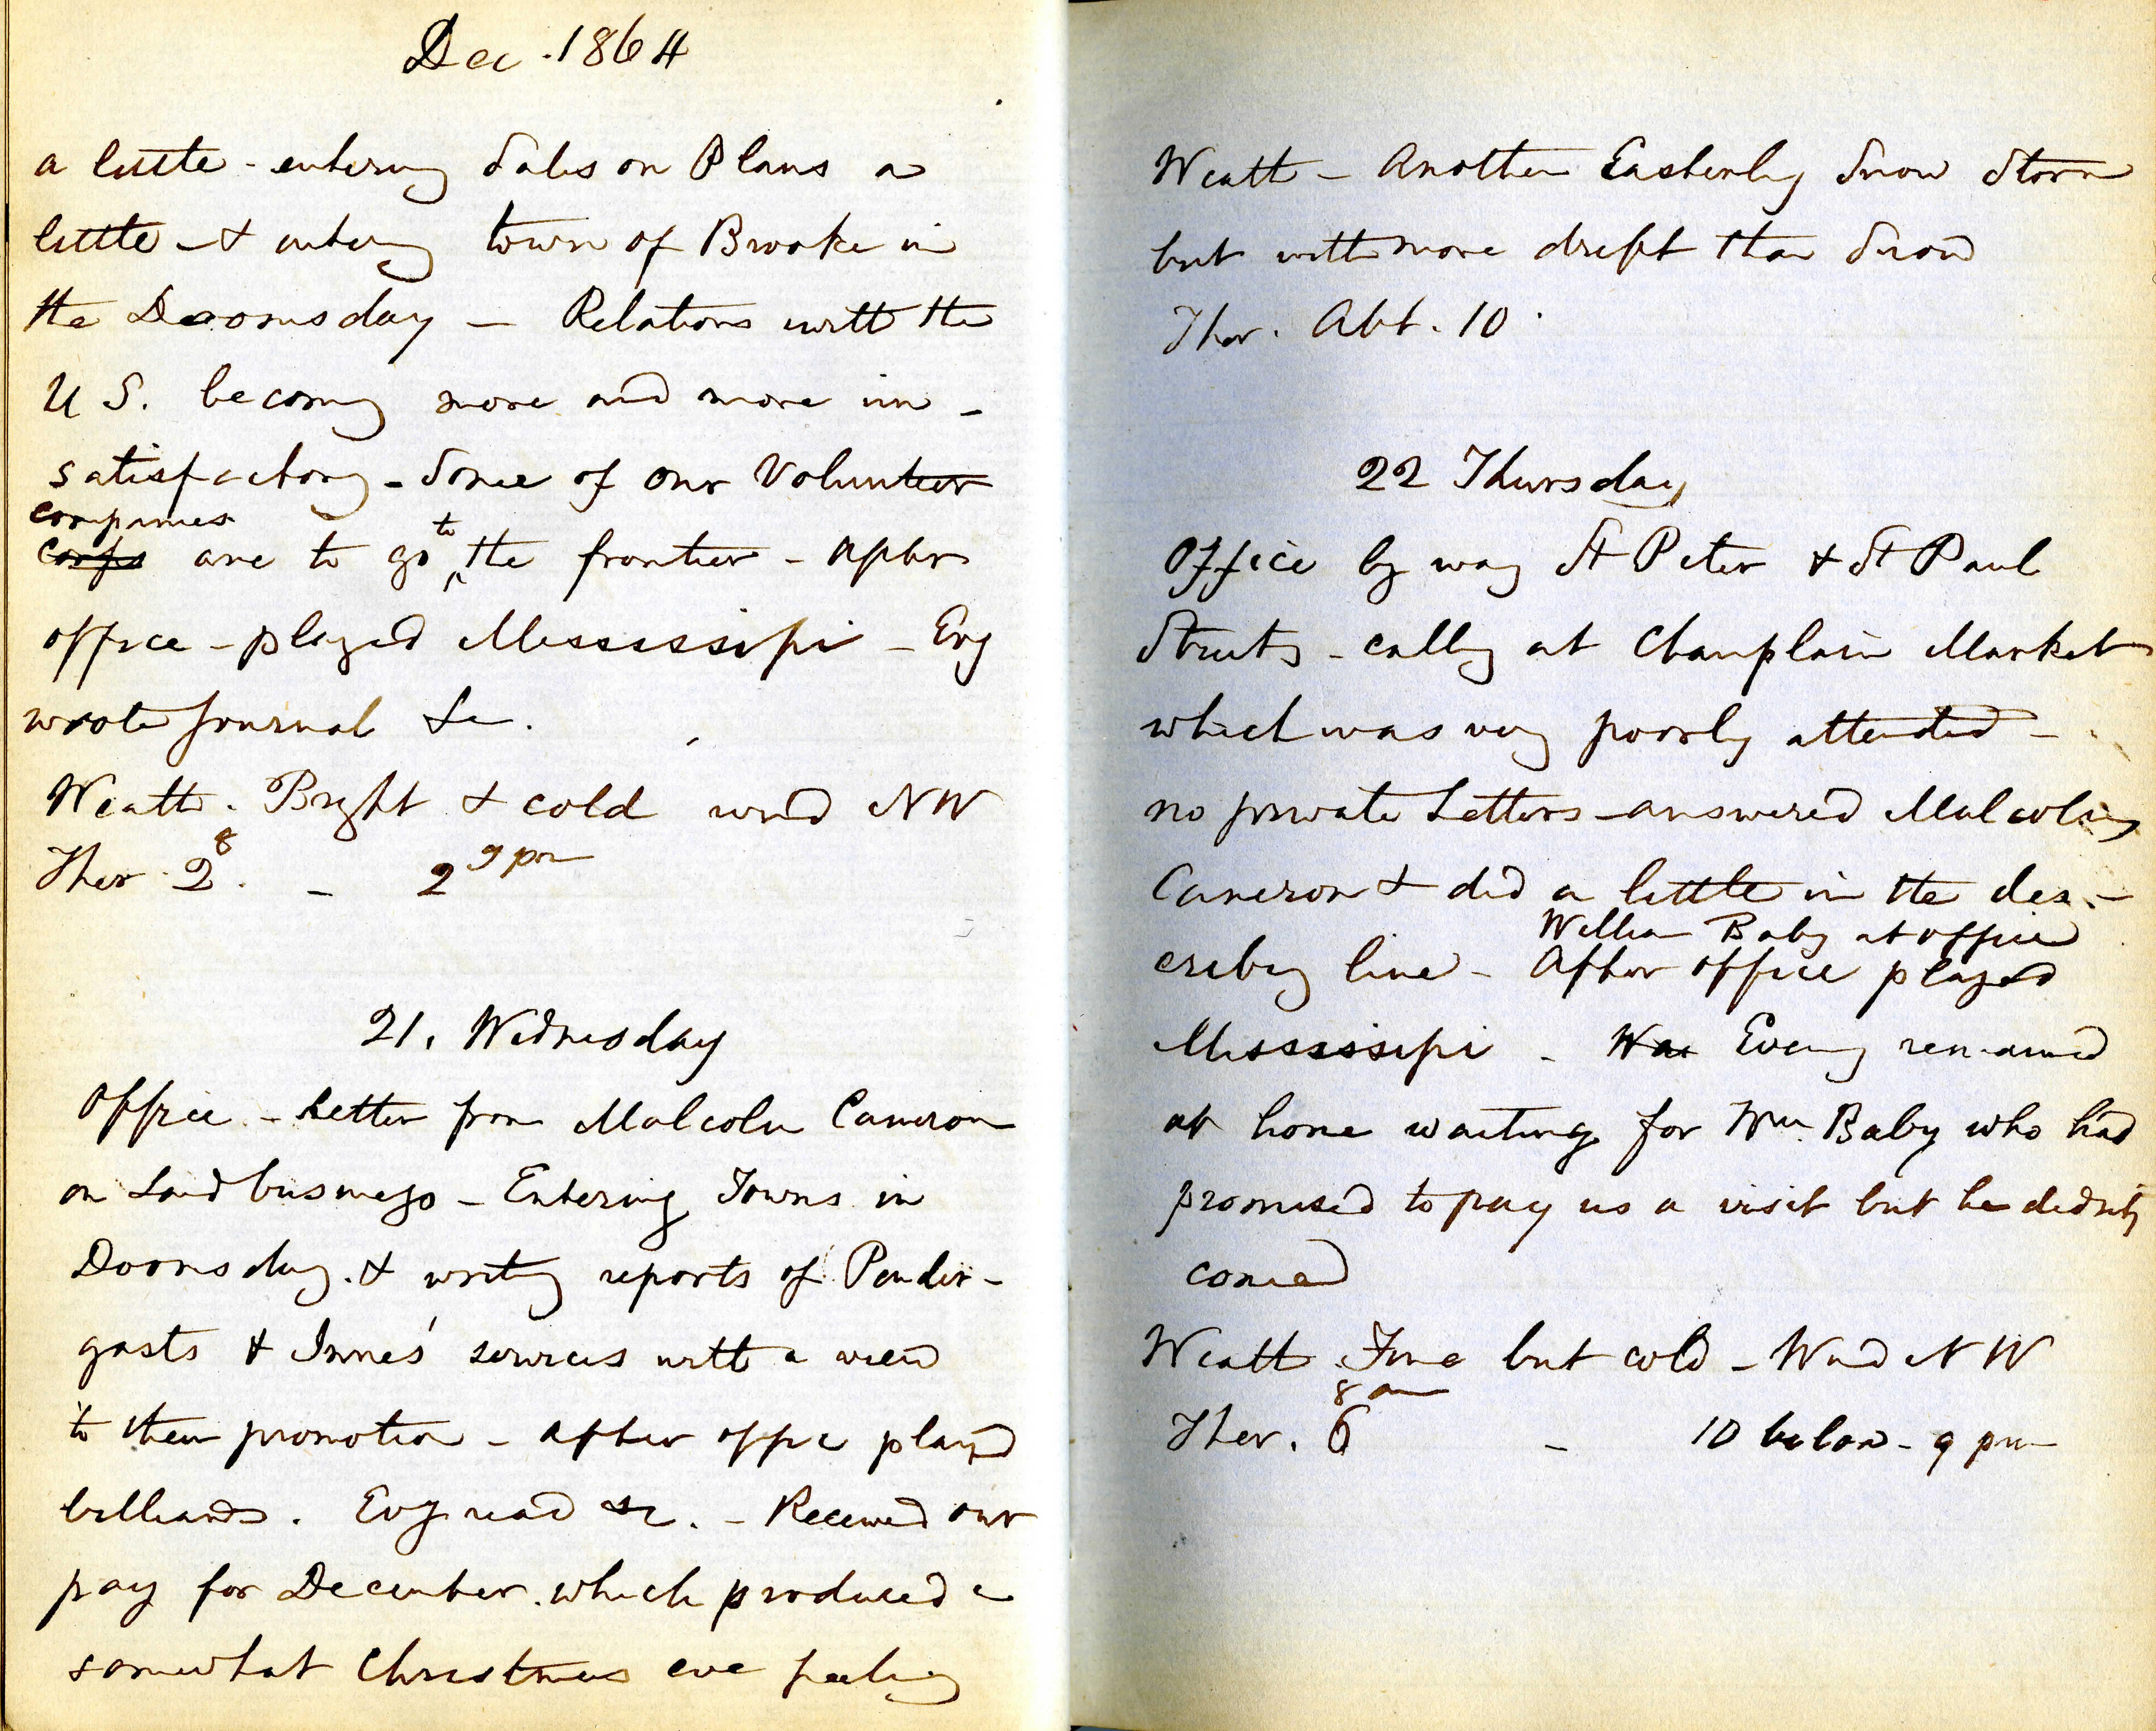 Dec. 1864
a little - entering Sales on Plans a
little - & entering town of Brooke in
the Doomsday - Relations with the
U S. becoming more and more un-
satisfactory - Some of our Volunteer
companies
corps are to go to the frontier - After
office - played Mississipi - Evg
wrote journal &c.
Weath. Bright & cold wind NW
8 9 pm
Ther 2. - 2
21. Wednesday
Office - Letter from Malcolm Cameron
on Land business - Entering Towns in
Doomsday. & writing reports of Pender-
gasts & Innes' services with a view
to their promotion - After office played
billiards. Evg read &c. - Received our
pay for December. which produced a
somewhat Christmas eve feeling
Weath - Another Easterly Snow Storm
but with more drift than Snow
Ther. Abt. 10
22 Thursday
Office by way St Peter & St Paul
Streets - calling at Champlain Market
which was very poorly attended -
no private Letters - answered Malcolm
Cameron & did a little in the des-
William Baby at office
cribing line - After office played
Mississipi - Was Evening remained
at home waiting for Wm. Baby who had
promised to pay us a visit but he didnt
come
Weath. Fine but cold - Wind N W
8 am
Ther. 6 - 10 below - 9 pm